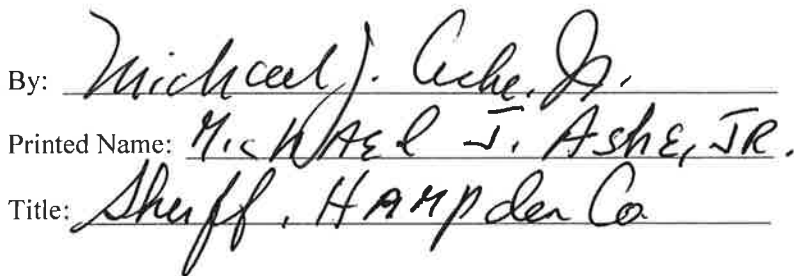 By: Michael J. Ashe, Jr.
Printed Name: Michael J. Ashe, JR.
Title: Sheriff, Hampden Co